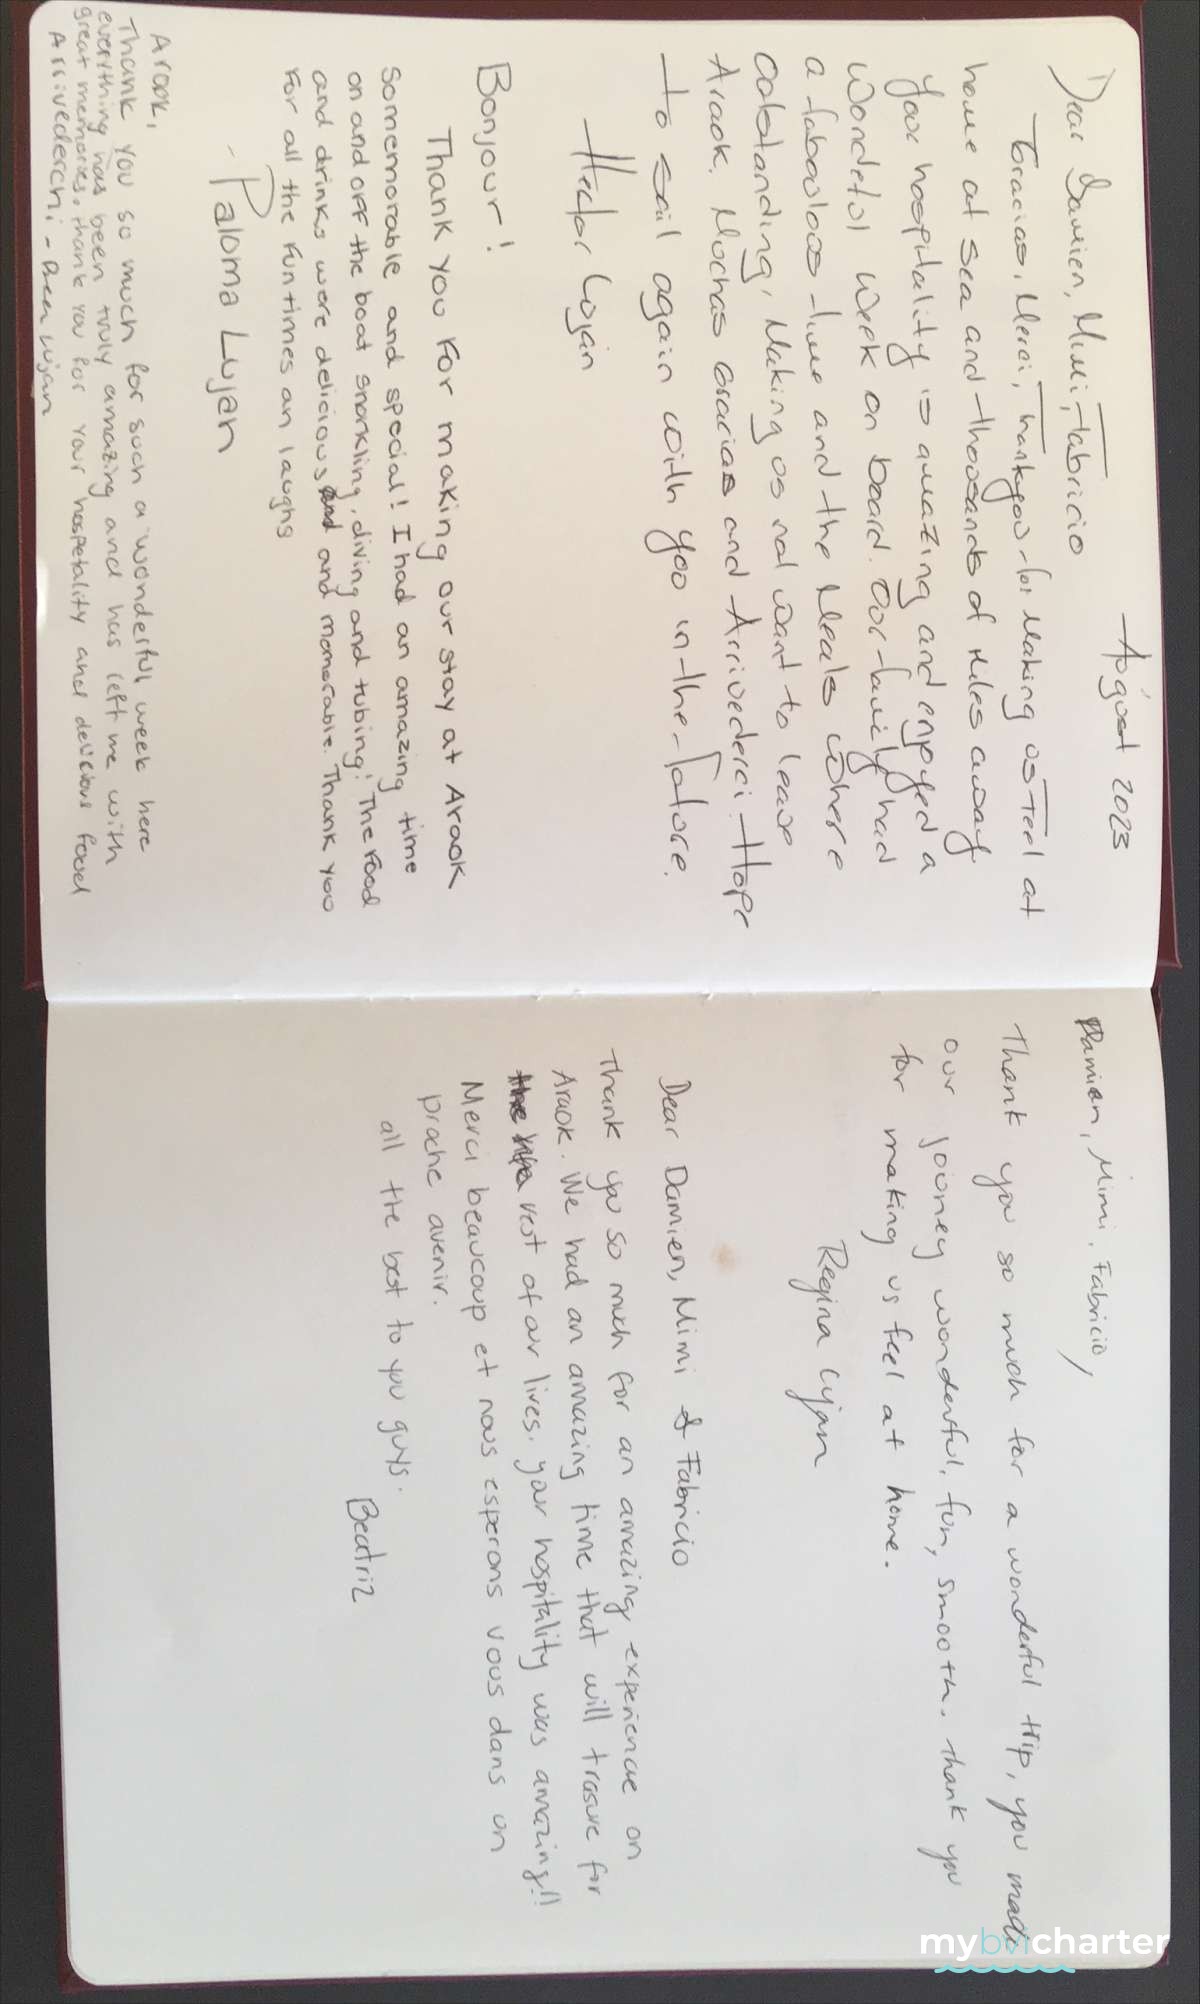 August 2023
Dear Damien, Mimi, Fabricio
Gracias, Merci, Thankyou for Making us Feel at
home at sea and thousands of Miles away
Your hospitality is amazing and enjoyed a
Wondeful Week on board. Our family had
a fabulous time and the Meals where
Outstanding, Making us not want to leave
Araok. Muchas Gracias and Arrivederci. Hope
to sail again with you in the future.
Hector Lujan
Bonjour!
Thank you for making our stay at Araok
Somemorable and special! I had an amazing time
on and off the boat snorkling, diving and tubing! The food
and drinks were delicious and and memorable. Thank you
For all the fun times an laughs
- Paloma Lujan
Araok,
Thank you so much for such a wonderful week here
everything has been truly amazing and has left me with
great memories, thank you for your hospetality and delicious food
Arrivederchi - Lujan
Damien, Mimi, Fabricio,
Thank you so much for a wonderful trip, you made
our journey wonderful, fun, smooth. Thank you
for making us feel at home.
Regina Lujan
Dear Damien, Mimi & Fabricio
Thank you so much for an amazing experience on
Araok. We had an amazing time that will trasure for
the rest of our lives, your hospitality was amazing!!
Merci beaucoup et nous esperons vous dans un
proche avenir.
all the best to you guys.
Beatriz
mybvicharter